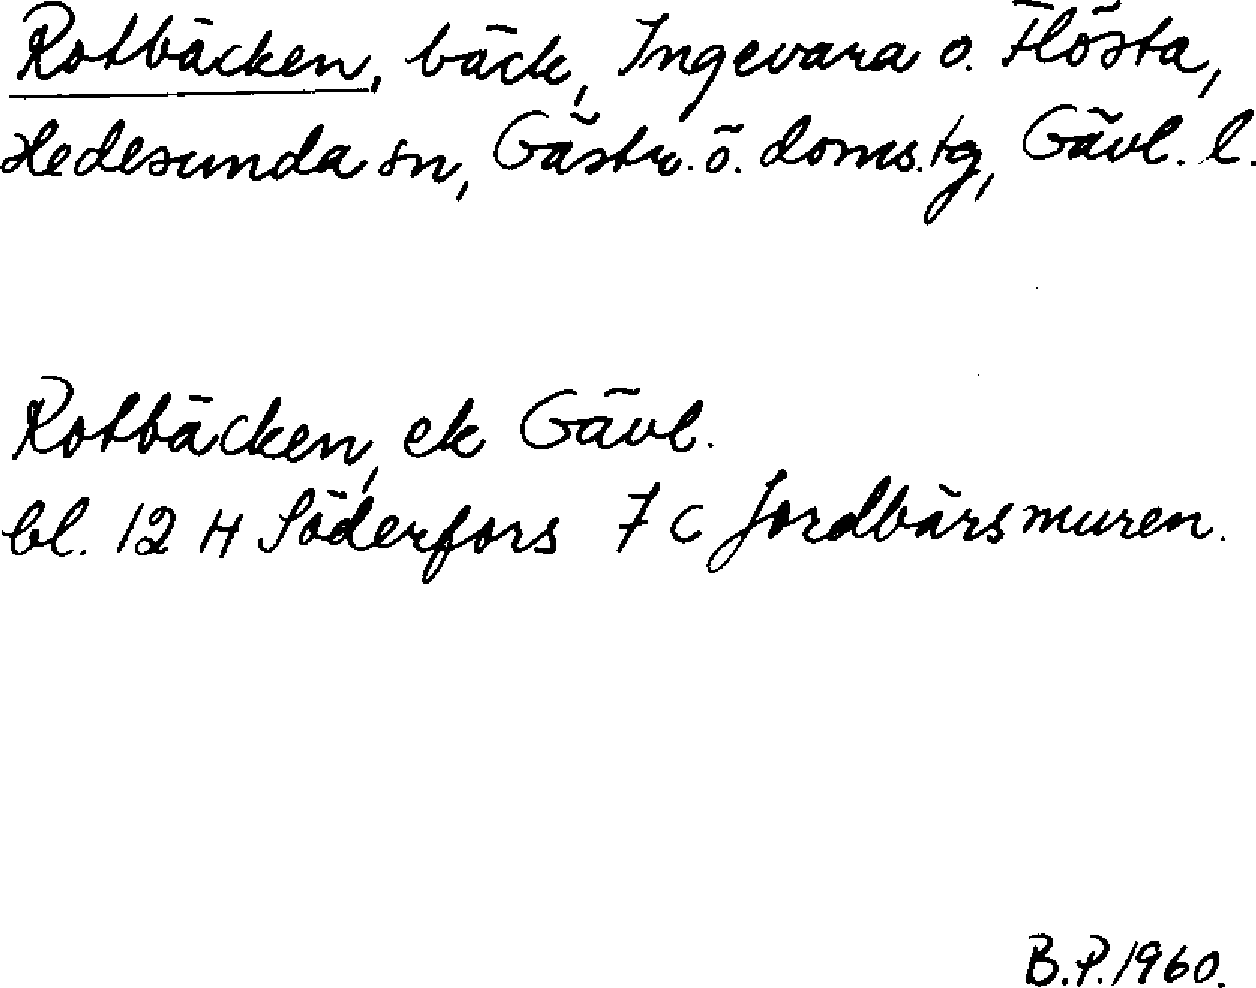 Rotbäcken, bäck, Ingevara o. Flösta,
Hedesunda sn, Gästr. ö. doms.tg, Gävl. l.
Rotbäcken, ek Gävl.
bl. 12 H Söderfors 7 c Jordbärsmuren.
B.P. 1960.